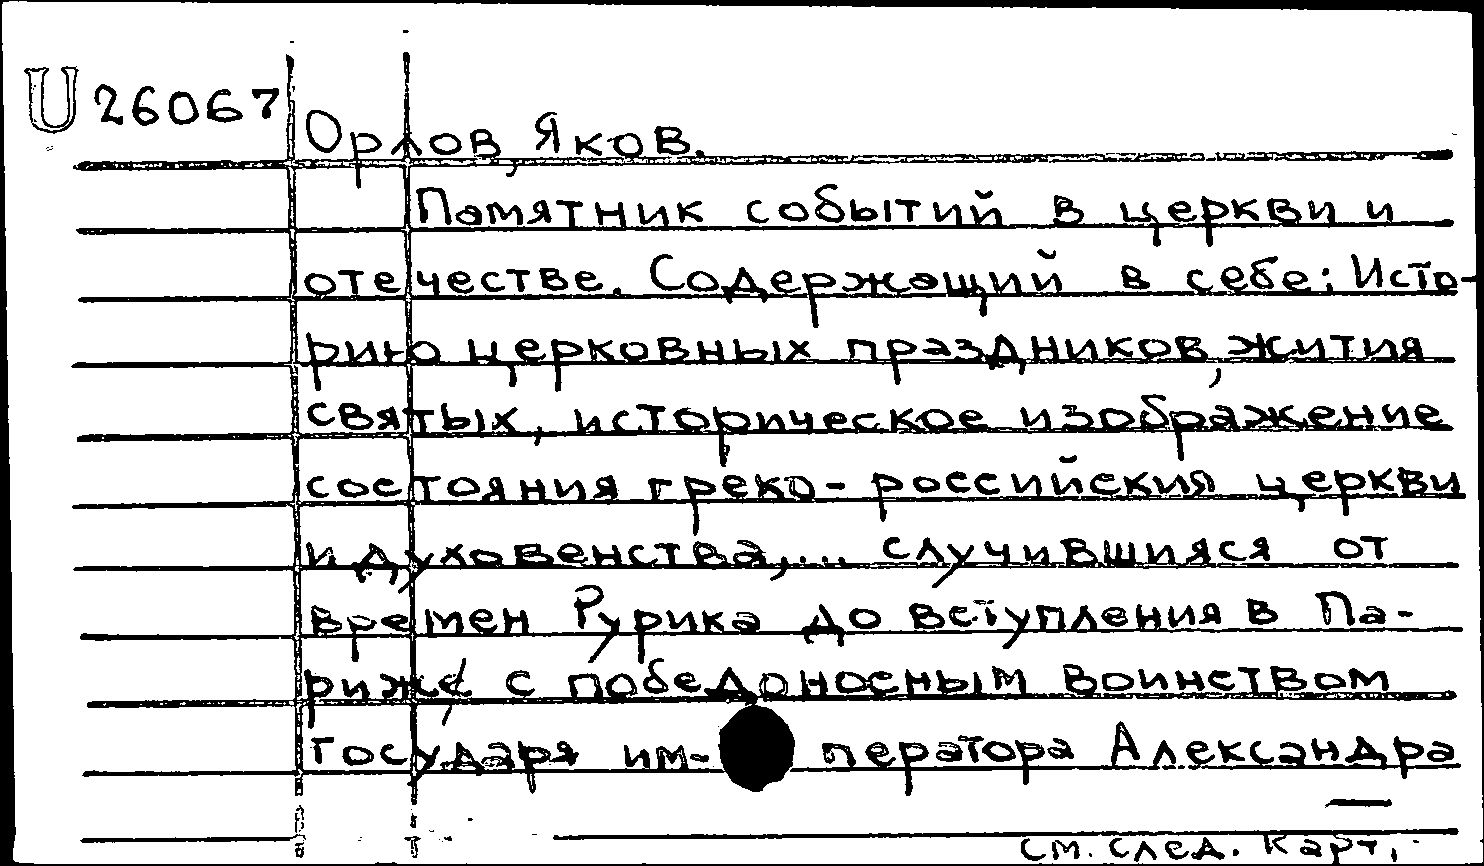 U 26067
Орлов, Яков.
Памятник событий в церкви и
отечестве. Содержащий в себе: Исто-
рию церковных праздников, жития
святых, историческое изображение
состояния греко-российския церкви
и духовенства,... случившияся от
времен Рурика до вступления в Па-
риж с победоносным воинством
государя им- ператора Александра
см. след. карт.